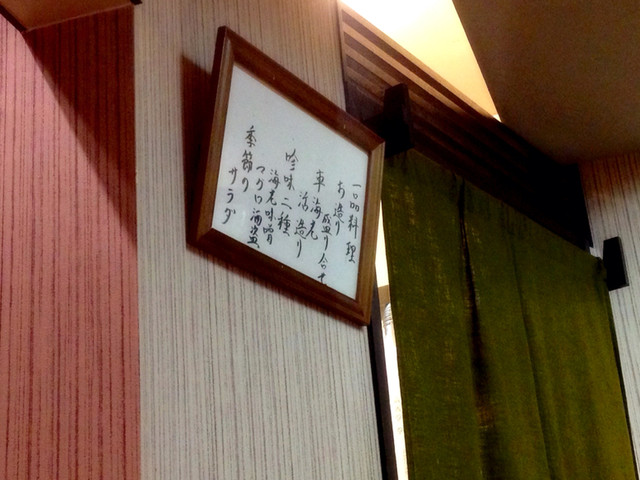 一品料理
お造り盛り合せ
車海老活造り
吟味二種
海老味噌
マグロ酒盗
季節のサラダ